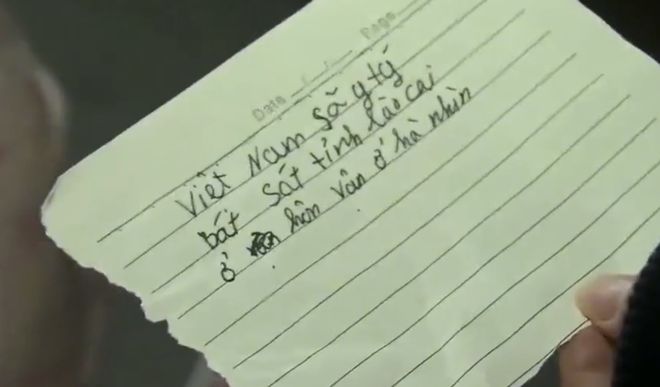 Date Page
Việt Nam sã y tý
bát sát tỉnh lào cai
ở hôn vân ở hà nhìn